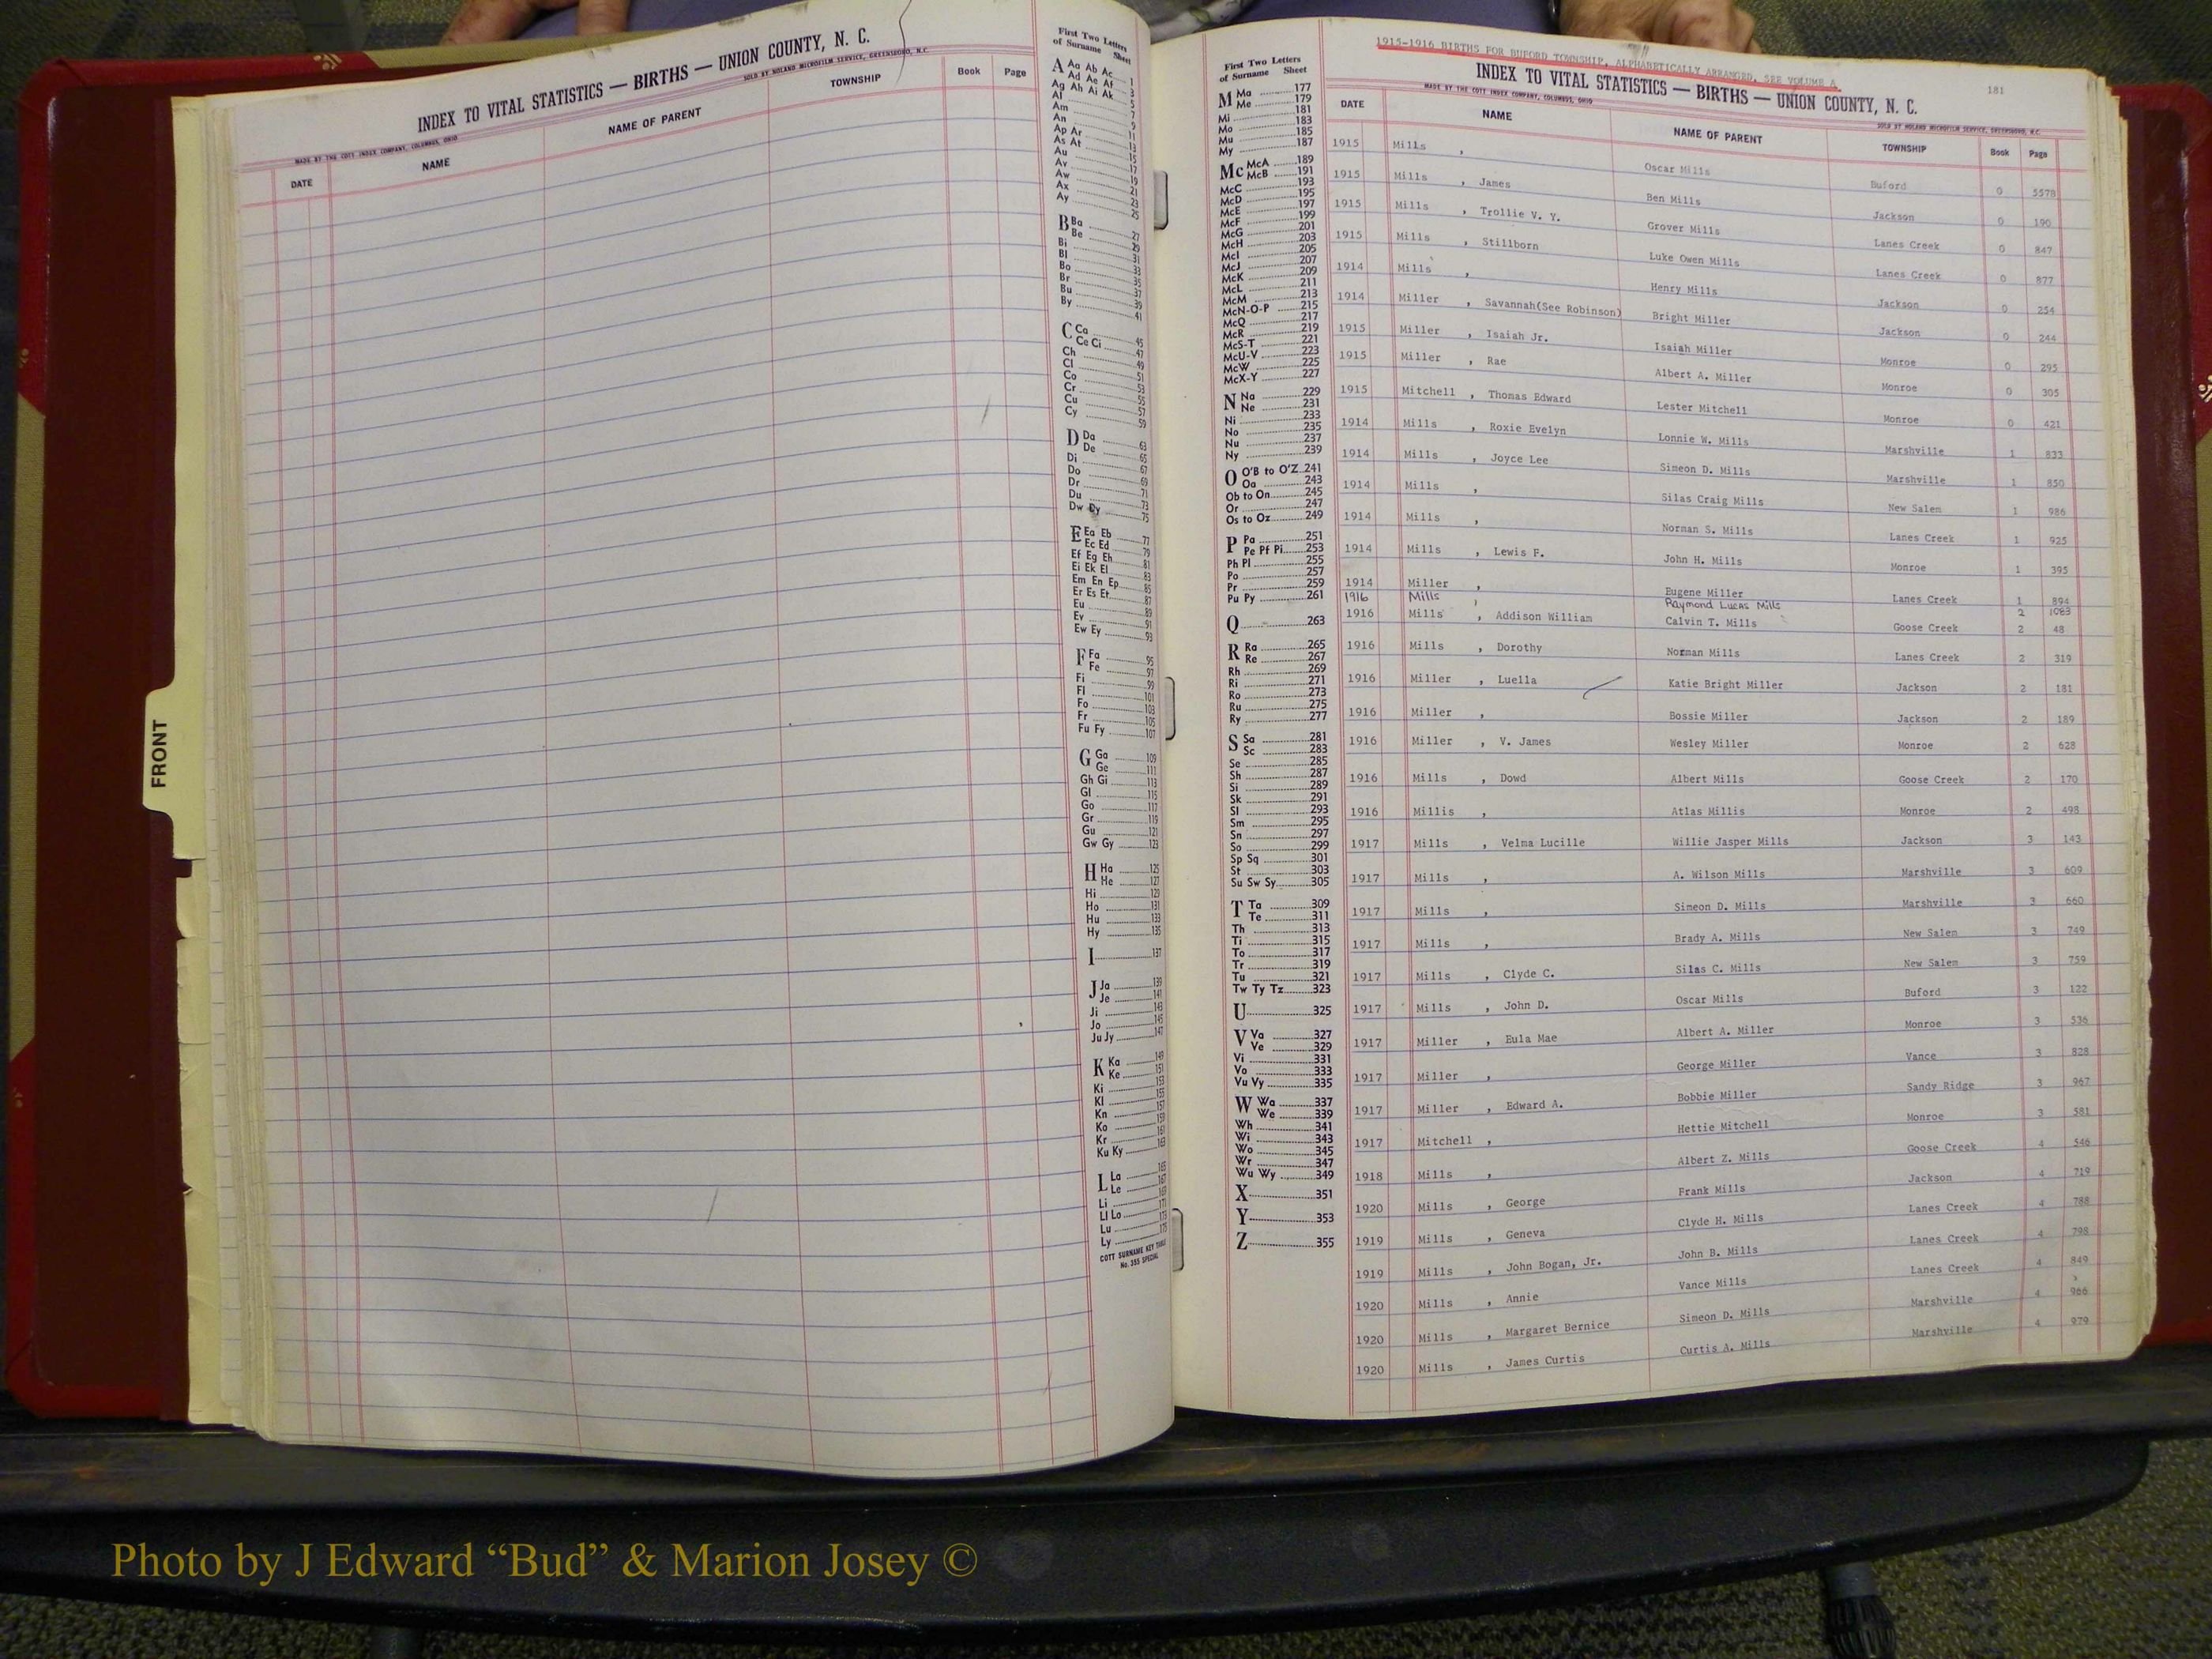 INDEX TO VITAL STATISTICS — BIRTHS — UNION COUNTY, N. C.
MADE BY THE COTT INDEX COMPANY, COLUMBUS, OHIO
SOLD BY NOLAND MICROFILM SERVICE, GREENSBORO, N.C.
DATE NAME NAME OF PARENT TOWNSHIP Book Page
FRONT
First Two Letters
of Surname Sheet
A Aa Ab Ac 1
Ad Ae Af 3
Ag Ah Ai Ak 5
Al 7
Am 9
An 11
Ap Ar 13
As At 15
Au 17
Av 19
Aw 21
Ax 23
Ay 25
B Ba 27
Be 29
Bi 31
Bl 33
Bo 35
Br 37
Bu 39
By 41
C Ca 45
Ce Ci 47
Ch 49
Cl 51
Co 53
Cr 55
Cu 57
Cy 59
D Da 63
De 65
Di 67
Do 69
Dr 71
Du 73
Dw Dy 75
E Ea Eb 77
Ec Ed 79
Ef Eg Eh 81
Ei Ek El 83
Em En Ep 85
Er Es Et 87
Eu 89
Ev 91
Ew Ey 93
F Fa 95
Fe 97
Fi 99
Fl 101
Fo 103
Fr 105
Fu Fy 107
G Ga 109
Ge 111
Gh Gi 113
Gl 115
Go 117
Gr 119
Gu 121
Gw Gy 123
H Ha 125
He 127
Hi 129
Ho 131
Hu 133
Hy 135
I 137
J Ja 139
Je 141
Ji 143
Jo 145
Ju Jy 147
K Ka 149
Ke 151
Ki 153
Kl 155
Kn 157
Ko 159
Kr 161
Ku Ky 163
L La 165
Le 167
Li 169
Ll Lo 171
Lu 173
Ly 175
COTT SURNAME KEY TABLE
No. 355 SPECIAL
First Two Letters
of Surname Sheet
M Ma 177
Me 179
Mi 181
Mo 183
Mu 185
My 187
Mc McA 189
McB 191
McC 193
McD 195
McE 197
McF 199
McG 201
McH 203
McI 205
McJ 207
McK 209
McL 211
McM 213
McN-O-P 215
McQ 217
McR 219
McS-T 221
McU-V 223
McW 225
McX-Y 227
N Na 229
Ne 231
Ni 233
No 235
Nu 237
Ny 239
O O'B to O'Z 241
Oa 243
Ob to On 245
Or 247
Os to Oz 249
P Pa 251
Pe Pf Pi 253
Ph Pl 255
Po 257
Pr 259
Pu Py 261
Q 263
R Ra 265
Re 267
Rh 269
Ri 271
Ro 273
Ru 275
Ry 277
S Sa 281
Sc 283
Se 285
Sh 287
Si 289
Sk 291
Sl 293
Sm 295
Sn 297
So 299
Sp Sq 301
St 303
Su Sw Sy 305
T Ta 309
Te 311
Th 313
Ti 315
To 317
Tr 319
Tu 321
Tw Ty Tz 323
U 325
V Va 327
Ve 329
Vi 331
Vo 333
Vu Vy 335
W Wa 337
We 339
Wh 341
Wi 343
Wo 345
Wr 347
Wu Wy 349
X 351
Y 353
Z 355
1915-1916 BIRTHS FOR BUFORD TOWNSHIP, ALPHABETICALLY ARRANGED, SEE VOLUME A
INDEX TO VITAL STATISTICS — BIRTHS — UNION COUNTY, N. C. 181
MADE BY THE COTT INDEX COMPANY, COLUMBUS, OHIO
SOLD BY NOLAND MICROFILM SERVICE, GREENSBORO, N.C.
DATE NAME NAME OF PARENT TOWNSHIP Book Page
1915 Mills , Oscar Mills Buford 0 557B
1915 Mills , James Ben Mills Jackson 0 190
1915 Mills , Trollie V. Y. Grover Mills Lanes Creek 0 847
1915 Mills , Stillborn Luke Owen Mills Lanes Creek 0 877
1914 Mills , Henry Mills Jackson 0 254
1914 Miller , Savannah(See Robinson) Bright Miller Jackson 0 244
1915 Miller , Isaiah Jr. Isaiah Miller Monroe 0 295
1915 Miller , Rae Albert A. Miller Monroe 0 305
1915 Mitchell , Thomas Edward Lester Mitchell Monroe 0 421
1914 Mills , Roxie Evelyn Lonnie W. Mills Marshville 1 833
1914 Mills , Joyce Lee Simeon D. Mills Marshville 1 850
1914 Mills , Silas Craig Mills New Salem 1 986
1914 Mills , Norman S. Mills Lanes Creek 1 925
1914 Mills , Lewis F. John H. Mills Monroe 1 395
1914 Miller , Eugene Miller Lanes Creek 1 894
1916 Mills , Raymond Lucas Mills 2 1083
1916 Mills , Addison William Calvin T. Mills Goose Creek 2 48
1916 Mills , Dorothy Norman Mills Lanes Creek 2 319
1916 Miller , Luella Katie Bright Miller Jackson 2 181
1916 Miller , Bossie Miller Jackson 2 189
1916 Miller , V. James Wesley Miller Monroe 2 628
1916 Mills , Dowd Albert Mills Goose Creek 2 170
1916 Millis , Atlas Millis Monroe 2 498
1917 Mills , Velma Lucille Willie Jasper Mills Jackson 3 143
1917 Mills , A. Wilson Mills Marshville 3 609
1917 Mills , Simeon D. Mills Marshville 3 660
1917 Mills , Brady A. Mills New Salem 3 749
1917 Mills , Clyde C. Silas C. Mills New Salem 3 759
1917 Mills , John D. Oscar Mills Buford 3 122
1917 Miller , Eula Mae Albert A. Miller Monroe 3 536
1917 Miller , George Miller Vance 3 828
1917 Miller , Edward A. Bobbie Miller Sandy Ridge 3 967
1917 Mitchell , Hettie Mitchell Monroe 3 581
1918 Mills , Albert Z. Mills Goose Creek 4 546
1920 Mills , George Frank Mills Jackson 4 719
1919 Mills , Geneva Clyde H. Mills Lanes Creek 4 788
1919 Mills , John Bogan, Jr. John B. Mills Lanes Creek 4 798
1920 Mills , Annie Vance Mills Lanes Creek 4 849
1920 Mills , Margaret Bernice Simeon D. Mills Marshville 4 966
1920 Mills , James Curtis Curtis A. Mills Marshville 4 979
Photo by J Edward “Bud” & Marion Josey ©